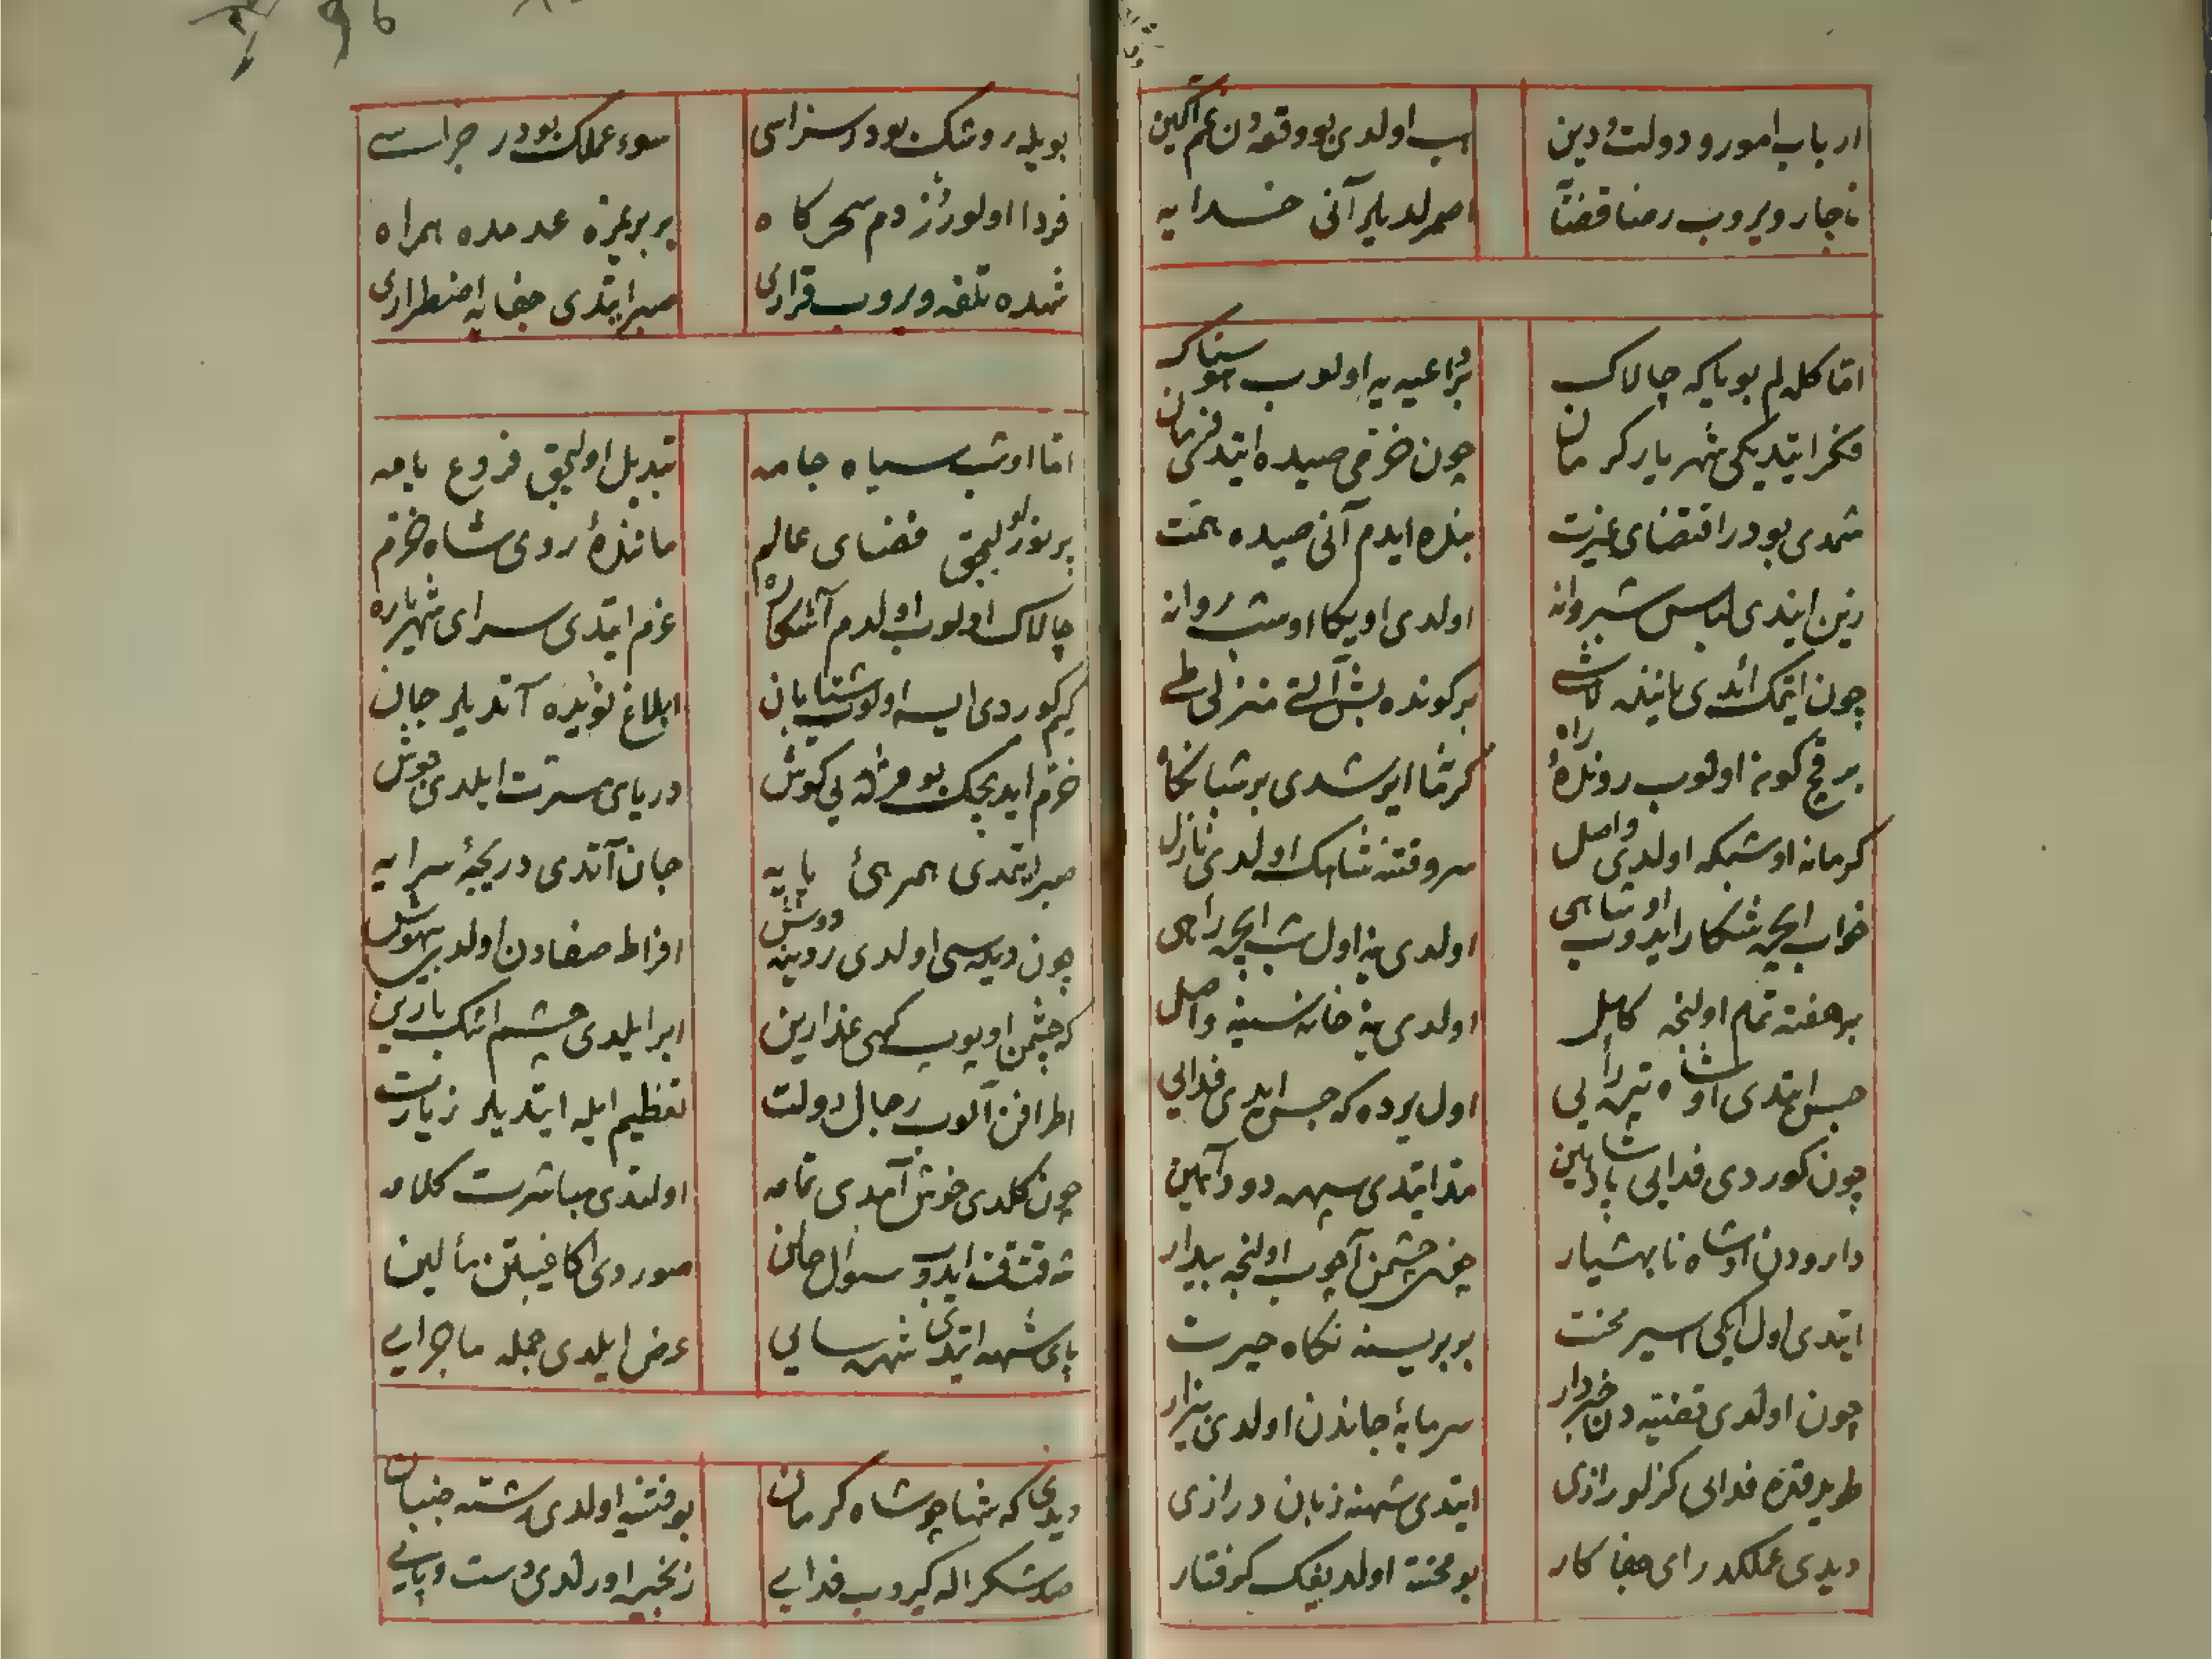 ارباب امور و دولت و دین
هب اولدی بو وقعه‌دن غم آکین
ناچار ویروب رضا قضایه
اصمرلدیلر آنی خدایه
اما کله‌لم بویاکه چالاک
فکر ایتدیکی شهریار کرمان
چون خرمی صیده ایتدی فرمان
شمدی بودر اقتضای غیرت
بنده ایدم آنی صیده همت
زین ایتدی لباس شبروانه
اولدی اویکا اوشب روانه
چون ایتمک ائدی مانند لاشی
بر کونده بش آلتی منزلی طی
بر قچ کونه اولوب رونده راه
کرمانا ایرشدی بر شبانکاه
کرمانه اوشبکه اولدی واصل
سروقتنه شاهک اولدی نازل
خواب ایچره شکار ایدوب اوشاهی
اولدی ینه اول شب ایچره راهی
بر هفته تمام اولنجه کامل
اولدی ینه خانه‌سینه واصل
حبس ایتدی اوشاه تیره رایی
اول یرده که حبس ایدی فدایی
چون کوردی فدایی پادشاهین
مد ایتدی سپهره دود آهین
دارودن اوشاه ناهشیار
چشمن آچوب اولنجه بیدار
ایتدی اول ایکی اسیر محنت
بربرینه نکاه حیرت
چون اولدی قضیه‌دن خبردار
سرمایهٔ جاندن اولدی بیزار
ایتدی شهنه زبان درازی
دیدی عملکدر ای جفا کار
بو محنته اولدیغک کرفتار
بویله روشک بودر سزاسی
سوء عملک بودر جزاسی
فردا اولورز دم سحرکاه
بربرمزه عدمده همراه
شهده تلفه ویروب قراری
صبر ایتدی جفایه اضطراری
اما اوشب سیاه جامه
تبدیل اولیجق فروغ بامه
پرنور اولیجق فضای عالم
مانندهٔ روی شاه خرم
چالاک اولوب اولدم آشکاره
عزم ایتدی سرای شهریاره
کیم کوردی ایسه اولوب شتابان
ابلاغ نویده آتدیلر جان
خرم ایدیجک بو مژده‌یی کوش
دریای مسرت ایلدی جوش
صبر ایتمدی همرهی پایه
جان آتدی دریچهٔ سرایه
افراط صفادن اولدی بیهوش
که چشمن اوپوب کهی عذارین
ابر ایلدی چشم اشک بارین
اطرافن آلوب رجال دولت
تعظیم ایله ایتدیلر زیارت
چون کلدی خوش آمدی تمامه
اولندی مباشرت کلامه
شه قتقف ایدوب سؤال حالن
صوردی اکا فیبتن مألین
عرض ایلدی جمله ماجرایی
دیدی که شها چو شاه کرمان
بو فتنیه اولدی رشته جنبان
صد شکر اله کیروب فدایی
زنجیره اورلدی دست و پایی